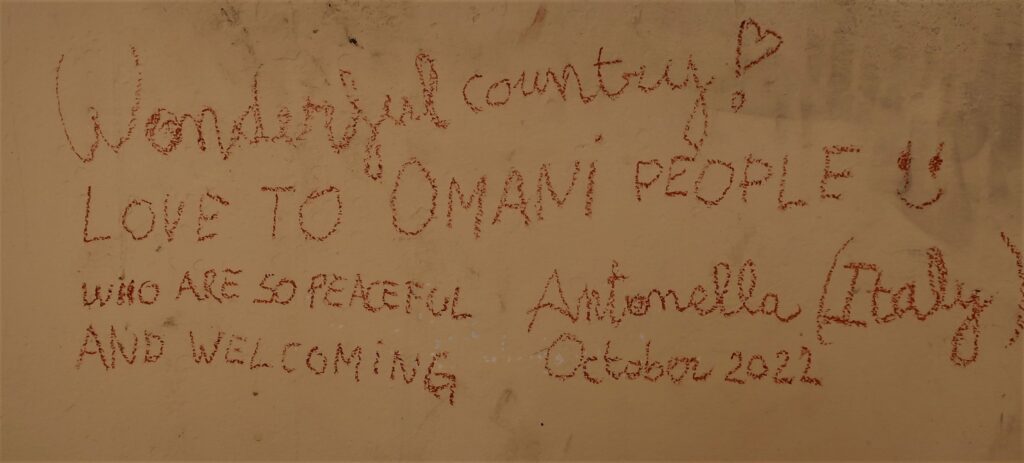 Wonderful country!
LOVE TO OMANI PEOPLE
WHO ARE SO PEACEFUL
AND WELCOMING
Antonella (Italy)
October 2022